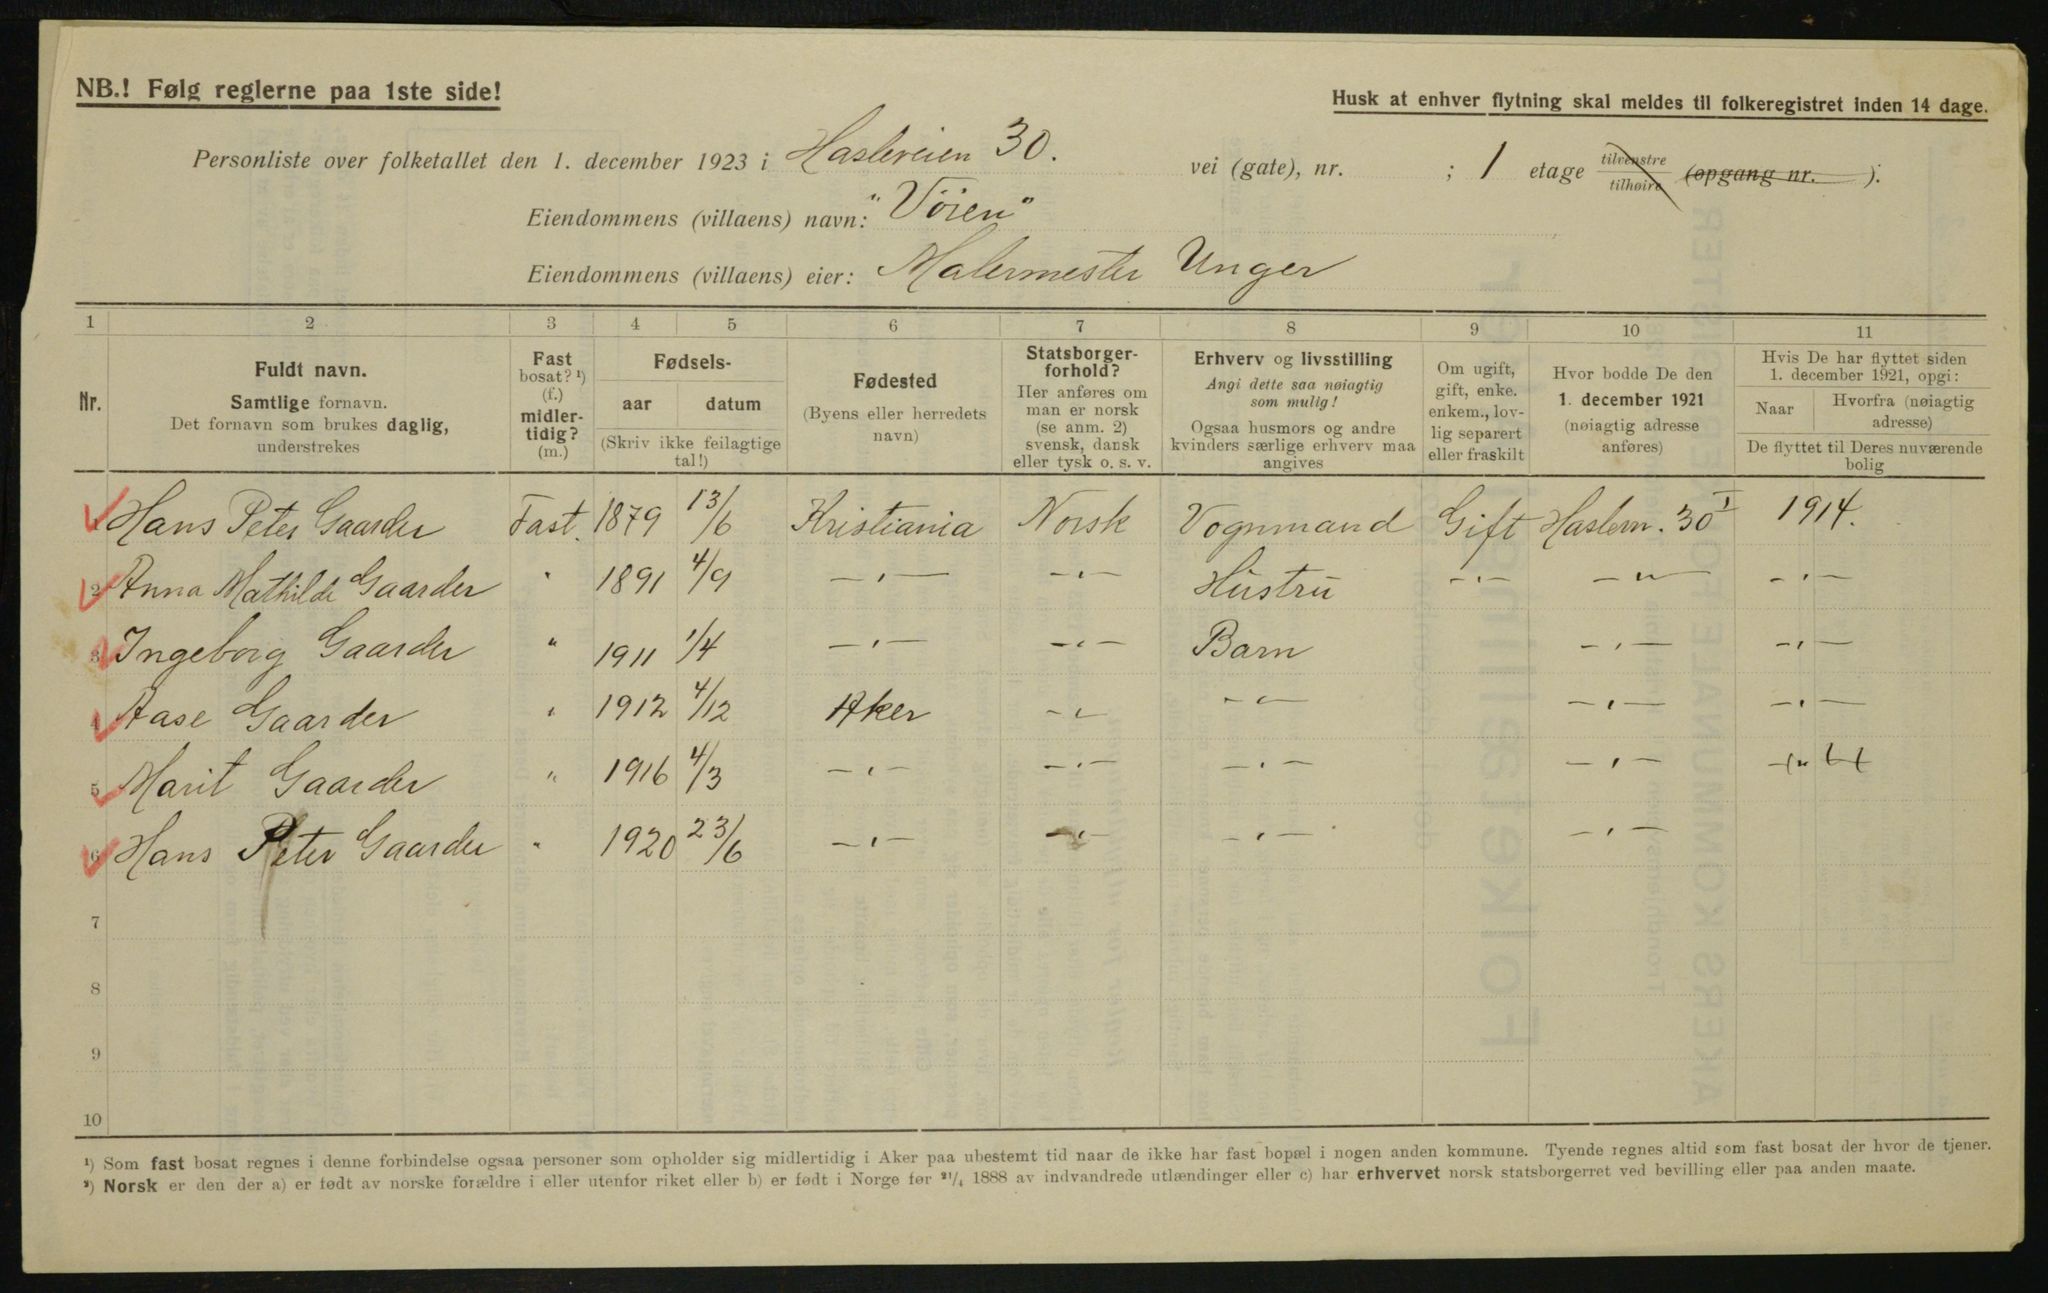 NB.! Følg reglerne paa 1ste side!
Husk at enhver flytning skal meldes til folkeregistret inden 14 dage.
Personliste over folketallet den 1. december 1923 i Haslereien 30. vei (gate), nr. ; 1 etage tilvenstre tilhøire (opgang nr. ):
Eiendommens (villaens) navn: "Vöien"
Eiendommens (villaens) eier: Malermester Unger
1 2 3 4 5 6 7 8 9 10 11
Nr.
Fuldt navn.
Samtlige fornavn.
Det fornavn som brukes daglig,
understrekes
Fast
bosat? ¹)
(f.)
midler-
tidig?
(m.)
Fødsels-
aar datum
(Skriv ikke feilagtige
tal!)
Fødested
(Byens eller herredets
navn)
Statsborger-
forhold?
Her anføres om
man er norsk
(se anm. 2)
svensk, dansk
eller tysk o. s. v.
Erhverv og livsstilling
Angi dette saa nøiagtig
som mulig!
Ogsaa husmors og andre
kvinders særlige erhverv maa
angives
Om ugift,
gift, enke.
enkem., lov-
lig separert
eller fraskilt
Hvor bodde De den
1. december 1921
(nøiagtig adresse
anføres)
Hvis De har flyttet siden
1. december 1921, opgi:
Naar Hvorfra (nøiagtig
adresse)
De flyttet til Deres nuværende
bolig
Hans Peter Gaarder Fast. 1879 13/6 Kristiania Norsk Vognmand Gift Haslern. 30 I 1914.
2 Anna Mathilde Gaarder " 1891 4/9 —"— —"— Hustru —"— —"— —"—
3 Ingeborg Gaarder " 1911 1/4 —"— —"— Barn —"— —"—
4 Aase Gaarder " 1912 4/12 Aker —"— —"— —"— —"—
5 Marit Gaarder " 1916 4/3 —"— —"— —"— —"—
6 Hans Peter Gaarder " 1920 23/6 —"— —"— —"— —"—
7
8
9
10
¹) Som fast bosat regnes i denne forbindelse ogsaa personer som opholder sig midlertidig i Aker paa ubestemt tid naar de ikke har fast bopæl i nogen anden kommune. Tyende regnes altid som fast bosat der hvor de tjener.
²) Norsk er den der a) er født av norske forældre i eller utenfor riket eller b) er født i Norge før ²¹/₄ 1888 av indvandrede utlændinger eller c) har erhvervet norsk statsborgerret ved bevilling eller paa anden maate.